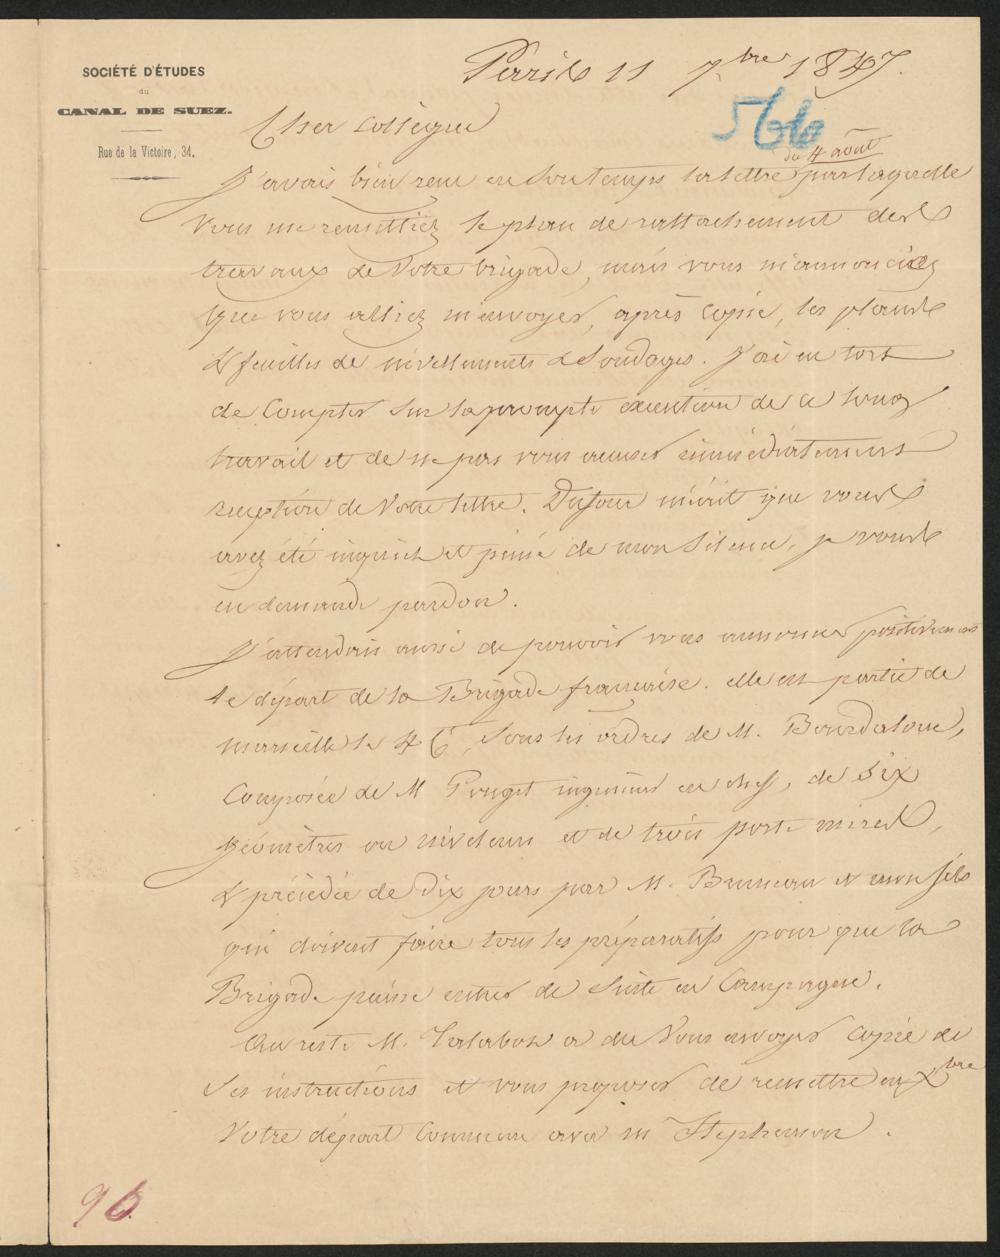 SOCIÉTÉ D'ÉTUDES
du
CANAL DE SUEZ.
Rue de la Victoire, 34.
Paris 11 7bre 1847.
566
Cher collègue
du 4 août
J'avais bien reçu en son temps la lettre par laquelle
vous me remettiez le plan de rattachement des
travaux de votre brigade, mais vous m'annonciez
que vous alliez m'envoyer, après copie, les plans
& feuilles de nivellements & sondages. J'ai eu tort
de compter sur la prompte exécution de ce long
travail et de ne pas vous accuser immédiatement
reception de votre lettre. Dufour m'écrit que vous
avez été inquiet et peiné de mon silence, je vous
en demande pardon.
J'attendais aussi de pouvoir vous annoncer positivement
le départ de la Brigade française. elle est partie de
marseille le 4 Ct, sous les ordres de M. Bourdaloue,
composée de M Pouget ingénieur en chef, de six
géomètres ou niveleurs et de trois porte mires,
& précédée de dix jours par M. Bruneau et mon fils
qui doivent faire tous les préparatifs pour que la
Brigade puisse entrer de suite en Campagne.
Au reste M. Talabot a du vous envoyer copie de
ses instructions et vous proposer de remettre en Xbre
votre départ commun avec M Stephenson.
96